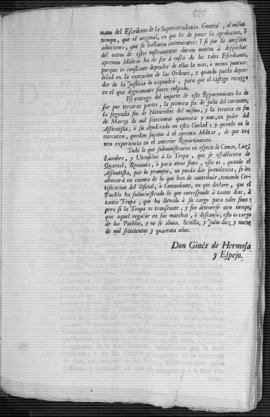 mano del Escribano de la Superintendencia General, al mismo
tiempo, que el original, en que he de poner la aprobacion,
que se hallaren
del retraso de estos instrumentos dieren motivo à despachar
apremio Militar ha de ser à costa de los tales Escribanos,
porque es constante depender de ellos la mas, ò menos puntua-
lidad en la execucion de las Ordenes, y quando pueda depen-
der de la Justicia lo expondrà, para que el castigo recayga
en el que dignamente fuere culpado.
El entrego del importe de este Repartimiento ha de
ser por terceras partes, la primera fin de Julio del corriente,
la segunda fin de Noviembre del mismo, y la tercera en fin
de Marzo de mil setecientos quarenta y uno, en poder del
Assentista, ò su Apoderado en esta Ciudad; y quando no lo
executen, quedan sujetos à el apremio Militar, de que tie-
nen experiencia en el anterior Repartimiento.
Todo lo que subministrare en especie de Camas, Luz,
Lumbre, y Utensilios à la Tropa, que se estableciere de
Quartel, Remonta, ò para otros fines, esto es, quando el
Assentista, por lo prompto, no pueda dàr providencia, se les
abonarà en cuenta de lo que han de contribuir, tomando Cer-
tificacion del Oficial, ò Comandante, en que declare, que el
Pueblo ha subministrado lo que corresponde à tantos dias, à
tanta Tropa, que ha llevado à su cargo para tales fines;
pero si la Tropa es transeunte, y sin detenerse otro tiempo,
que aquel regular en sus marchas, ò descanso, esto es cargo
de los Pueblos, y no se abona. Sevilla, y Julio diez, y nueve
de mil setecientos y quarenta años.
Don Ginès de Hermosa
y Espejo.